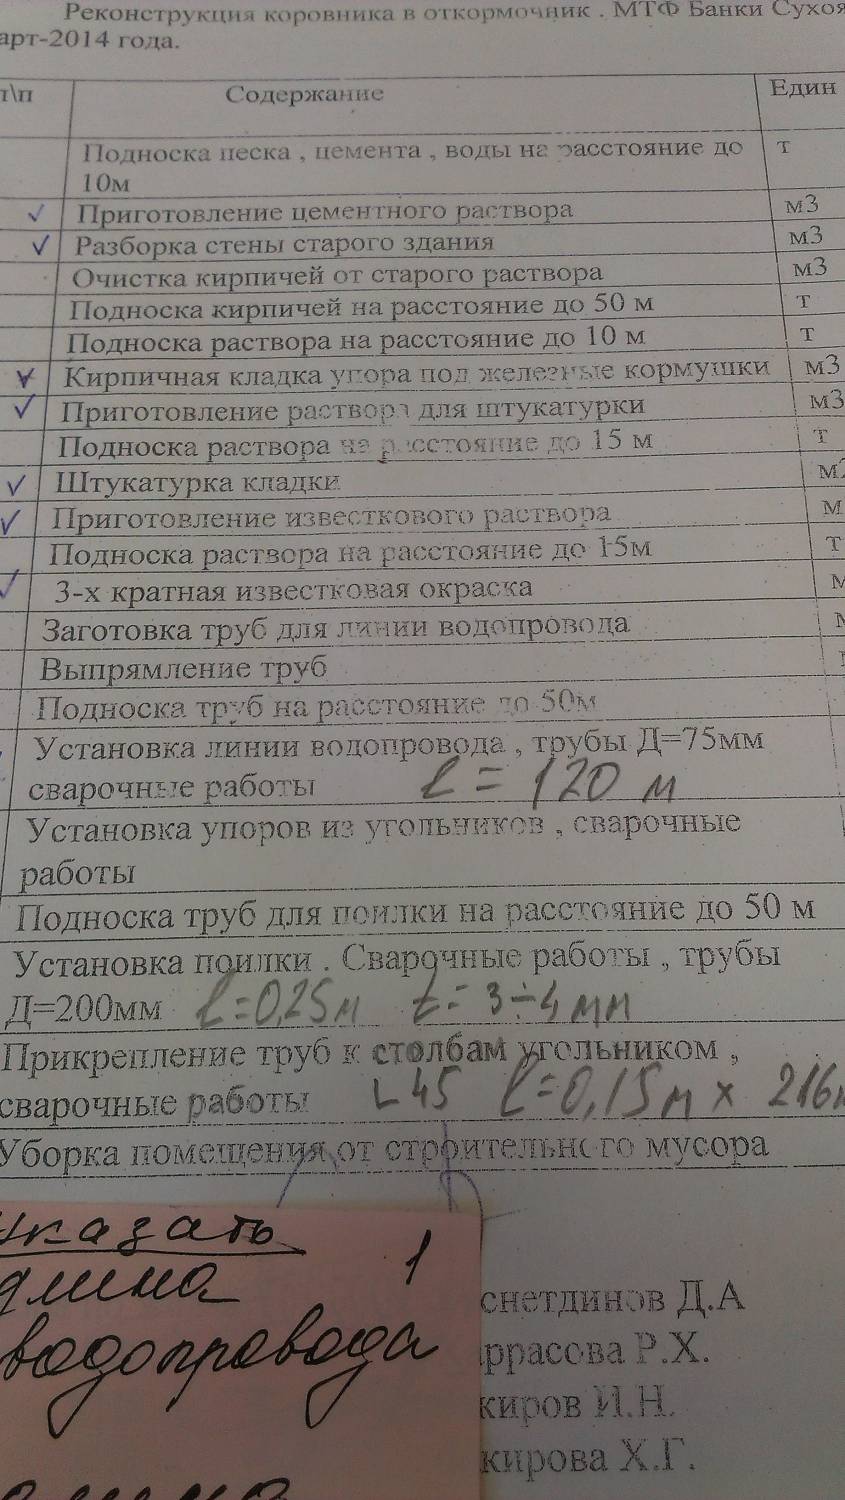 Реконструкция коровника в откормочник . МТФ Банки Сухоя
арт-2014 года.
п\п Содержание Един
Подноска песка , цемента , воды на расстояние до т
10м
Приготовление цементного раствора м3
Разборка стены старого здания м3
Очистка кирпичей от старого раствора м3
Подноска кирпичей на расстояние до 50 м т
Подноска раствора на расстояние до 10 м т
Кирпичная кладка упора под железные кормушки м3
Приготовление раствора для штукатурки м3
Подноска раствора на расстояние до 15 м т
Штукатурка кладки м2
Приготовление известкового раствора м
Подноска раствора на расстояние до 15м т
3-х кратная известковая окраска м
Заготовка труб для линии водопровода
Выпрямление труб
Подноска труб на расстояние до 50м
Установка линии водопровода , трубы Д=75мм
сварочные работы ℓ = 120 м
Установка упоров из угольников , сварочные
работы
Подноска труб для поилки на расстояние до 50 м
Установка поилки . Сварочные работы , трубы
Д=200мм ℓ=0,25м t=3÷4мм
Прикрепление труб к столбам угольником ,
сварочные работы ∟45 ℓ=0,15м х 216
Уборка помещения от строительного мусора
указать 1
длина
водопровода
снетдинов Д.А
аррасова Р.Х.
киров И.Н.
кирова Х.Г.